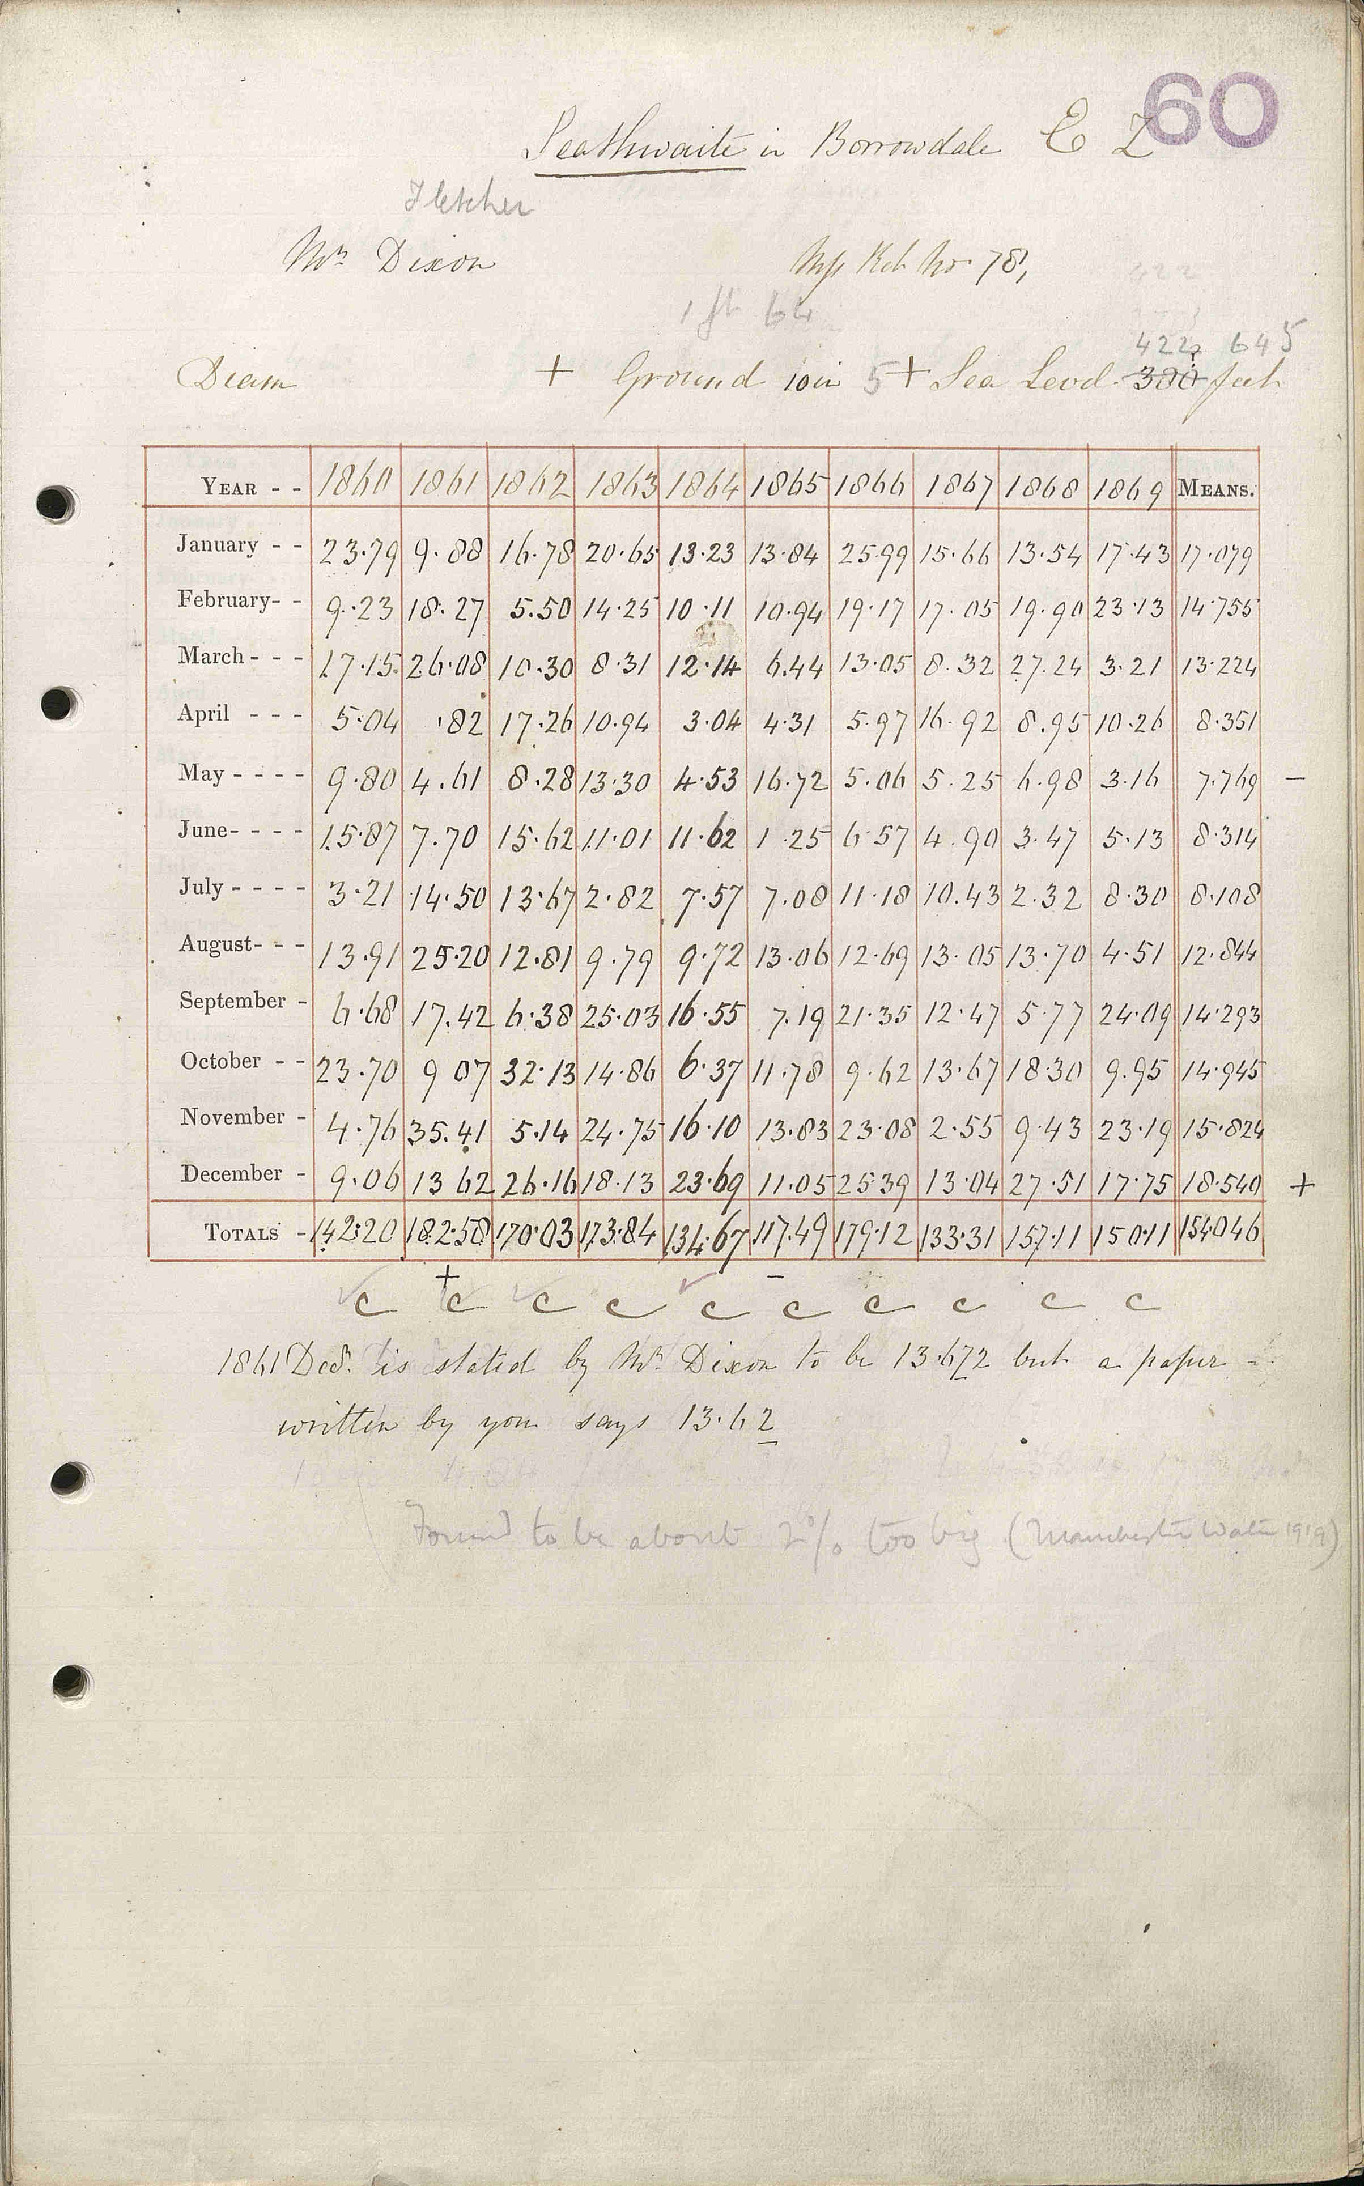 60
Seathwaite in Borrowdale E Z
Fletcher
Mr Dixon
No 78,
422
1 ft 64
422 645
Diam + Ground 10in 5 + Sea Level 380 feet
YEAR - - 1860 1861 1862 1863 1864 1865 1866 1867 1868 1869 MEANS.
January - - 23.79 9.88 16.78 20.65 13.23 13.84 25.99 15.66 13.54 17.43 17.079
February- - 9.23 18.27 5.50 14.25 10.11 10.94 19.17 17.05 19.90 23.13 14.755
March - - - 17.15 26.08 10.30 8.31 12.14 6.44 13.05 8.32 27.24 3.21 13.224
April - - - 5.04 .82 17.26 10.94 3.04 4.31 5.97 16.92 8.95 10.26 8.351
May - - - - 9.80 4.61 8.28 13.30 4.53 16.72 5.06 5.25 6.98 3.16 7.769 –
June- - - - 15.87 7.70 15.62 11.01 11.62 1.25 6.57 4.90 3.47 5.13 8.314
July - - - - 3.21 14.50 13.67 2.82 7.57 7.08 11.18 10.43 2.32 8.30 8.108
August- - - 13.91 25.20 12.81 9.79 9.72 13.06 12.69 13.05 13.70 4.51 12.844
September - 6.68 17.42 6.38 25.03 16.55 7.19 21.35 12.47 5.77 24.09 14.293
October - - 23.70 9 07 32.13 14.86 6.37 11.78 9.62 13.67 18.30 9.95 14.945
November - 4.76 35.41 5.14 24.75 16.10 13.83 23.08 2.55 9.43 23.19 15.824
December - 9.06 13 62 26.16 18.13 23.69 11.05 25.39 13.04 27.51 17.75 18.540 +
TOTALS - 142.20 182.58 170.03 173.84 134.67 117.49 179.12 133.31 157.11 150.11 154.046
+ –
c c c c c c c c c c
1861 Decr. is stated by Mr Dixon to be 13.672 but a paper
written by you says 13.62
Found to be about 2% too big (Manchester Water 1919)